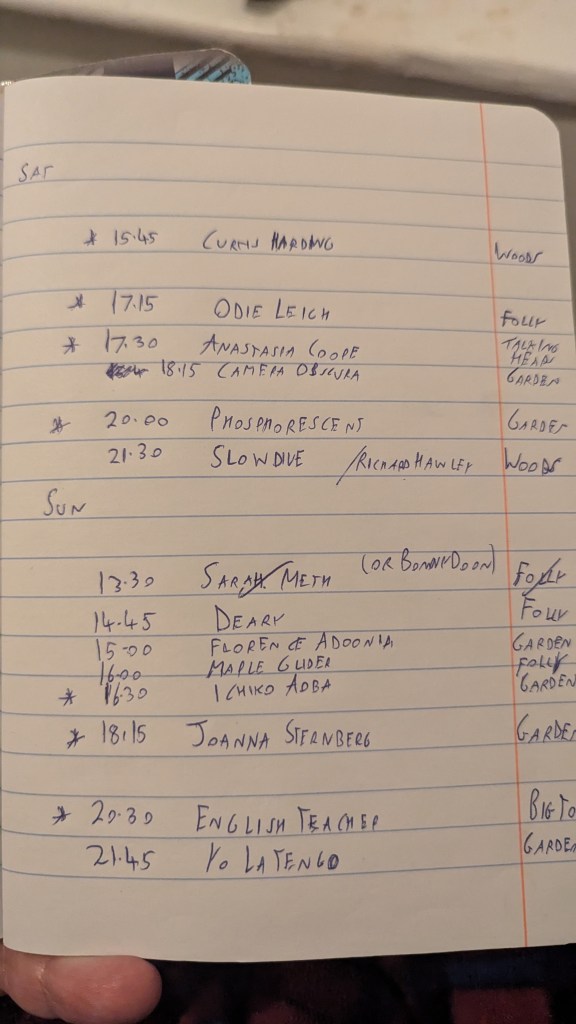 SAT
* 15.45 CURTIS HARDING WOODS
* 17.15 ODIE LEIGH FOLLY
* 17.30 ANASTASIA COOPE TALKING HEADS
18.15 CAMERA OBSCURA GARDEN
* 20.00 PHOSPHORESCENT GARDEN
21.30 SLOWDIVE /RICHARD HAWLEY WOODS
SUN
13.30 SARAH METH (OR BONNY DOON) FOLLY
14.45 DEARY FOLLY
15.00 FLORENCE ADOONIA GARDEN
16.00 MAPLE GLIDER FOLLY
* 16.30 ICHIKO AOBA GARDEN
* 18.15 JOANNA STERNBERG GARDEN
* 20.30 ENGLISH TEACHER BIG TO
21.45 YO LA TENGO GARDEN